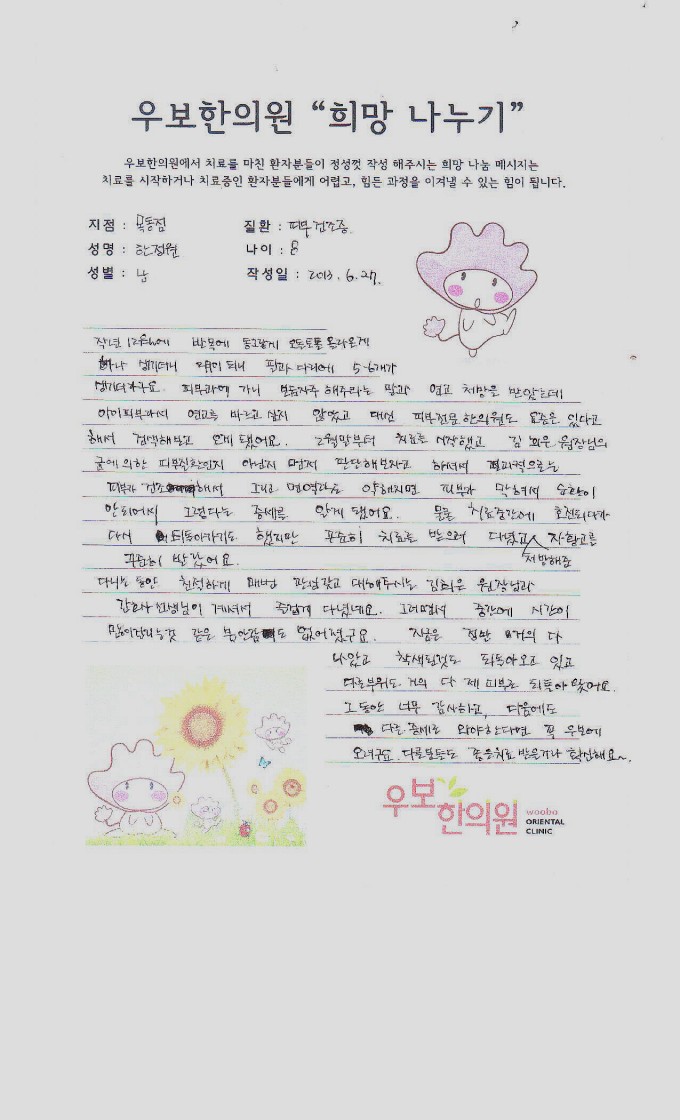 우보한의원 “희망 나누기”
우보한의원에서 치료를 마친 환자분들이 정성껏 작성 해주시는 희망 나눔 메시지는
치료를 시작하거나 치료중인 환자분들에게 어렵고, 힘든 과정을 이겨낼 수 있는 힘이 됩니다.
지점 : 목동점
질환 : 피부건조증
성명 : 한정원
나이 : 8
성별 : 남
작성일 : 2013. 6. 27.
작년 12월에 발목에 동그랗게 오돌토돌 올라온게
하나 생기더니 되니 팔과 다리에 5-6개가
생기더라구요. 피부과에 가니 보습자주 해주라는 말과 연고 처방을 받았는데
아이피부라서 연고를 바르고 싶지 않았고 대신 피부전문 한의원도 요즘은 있다고
해서 검색해보고 오게 됐어요. 2월말부터 치료를 시작했고 김희은 원장님의
균에 의한 피부질환인지 아닌지 먼저 판단해보자고 하셔서 결과적으로는
피부가 건조해서 그리고 면역력도 약해지면 피부가 막혀서 순환이
안되어서 그렇다는 증세를 알게 됐어요. 물론 치료중간에 호전되다가
다시 되돌아가기도 했지만 꾸준히 치료를 받으러 다녔고 자향고를
처방해준
꾸준히 발랐어요.
다니는 동안 친절하게 매번 관심갖고 대해주시는 김희은 원장님과
간호사 선생님이 계셔서 즐겁게 다녔네요. 그러면서 중간에 시간이
많이걸리는것 같은 불안감도 없어졌구요. 지금은 절반 거의 다
나았고 착색된것도 되돌아오고 있고
다른부위도 거의 다 제 피부로 되돌아 왔어요.
그동안 너무 감사하고, 다음에도
다른 증세로 와야한다면 꼭 우보에
오려구요. 다른분들도 좋은치료 받을거라 확신해요~.
우보한의원
woobo
ORIENTAL
CLINIC